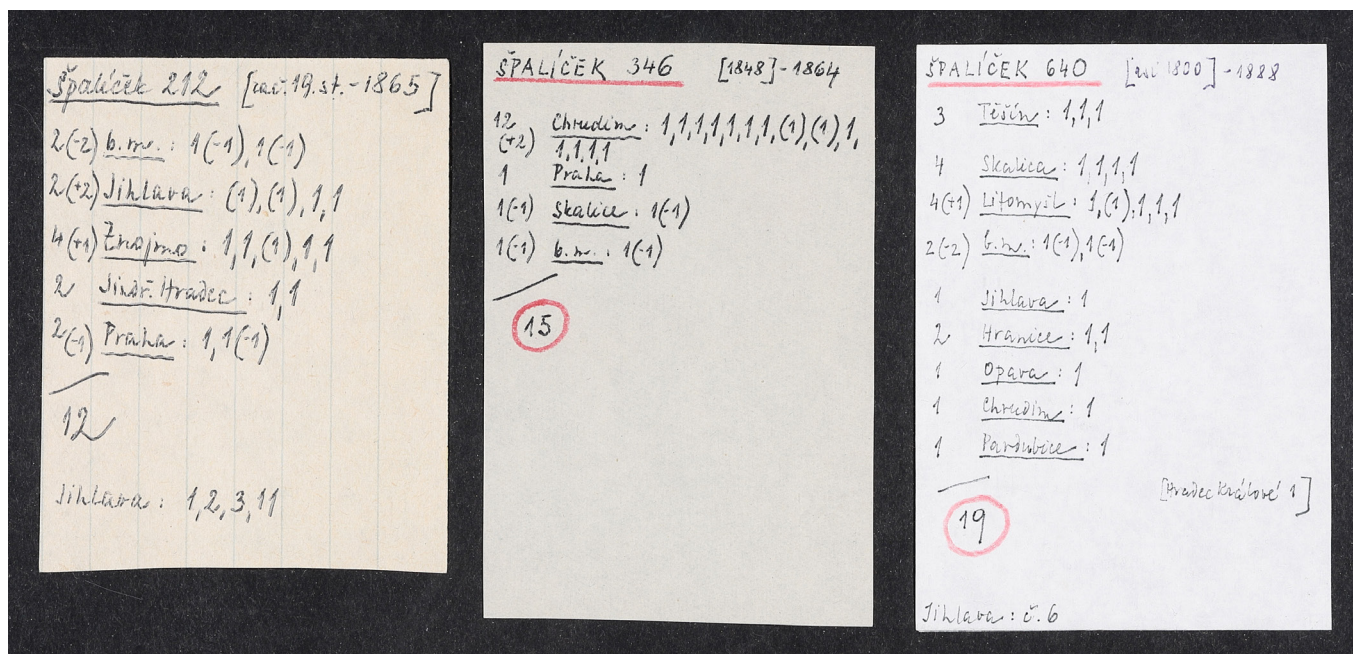 Špalíček 212 [zač. 19. st. - 1865]
2(-2) b. m. : 1(-1), 1(-1)
2(+2) Jihlava : (1), (1), 1, 1
4(+1) Znojmo : 1, 1, (1), 1, 1
2 Jindř. Hradec : 1, 1
2(-1) Praha : 1, 1(-1)
12
Jihlava : 1, 2, 3, 11
ŠPALÍČEK 346 [1848] - 1864
12 (+2) Chrudim : 1, 1, 1, 1, 1, 1, 1, (1), (1), 1,
1, 1, 1, 1
1 Praha : 1
1(-1) Skalice : 1(-1)
1(-1) b. m. : 1(-1)
15
ŠPALÍČEK 640 [asi 1800] - 1888
3 Těšín : 1, 1, 1
4 Skalica : 1, 1, 1, 1
4(+1) Litomyšl : 1, (1), 1, 1, 1
2(-2) b. m. : 1(-1), 1(-1)
1 Jihlava : 1
2 Hranice : 1, 1
1 Opava : 1
1 Chrudim : 1
1 Pardubice : 1
[Hradec Králové 1]
19
Jihlava : č. 6